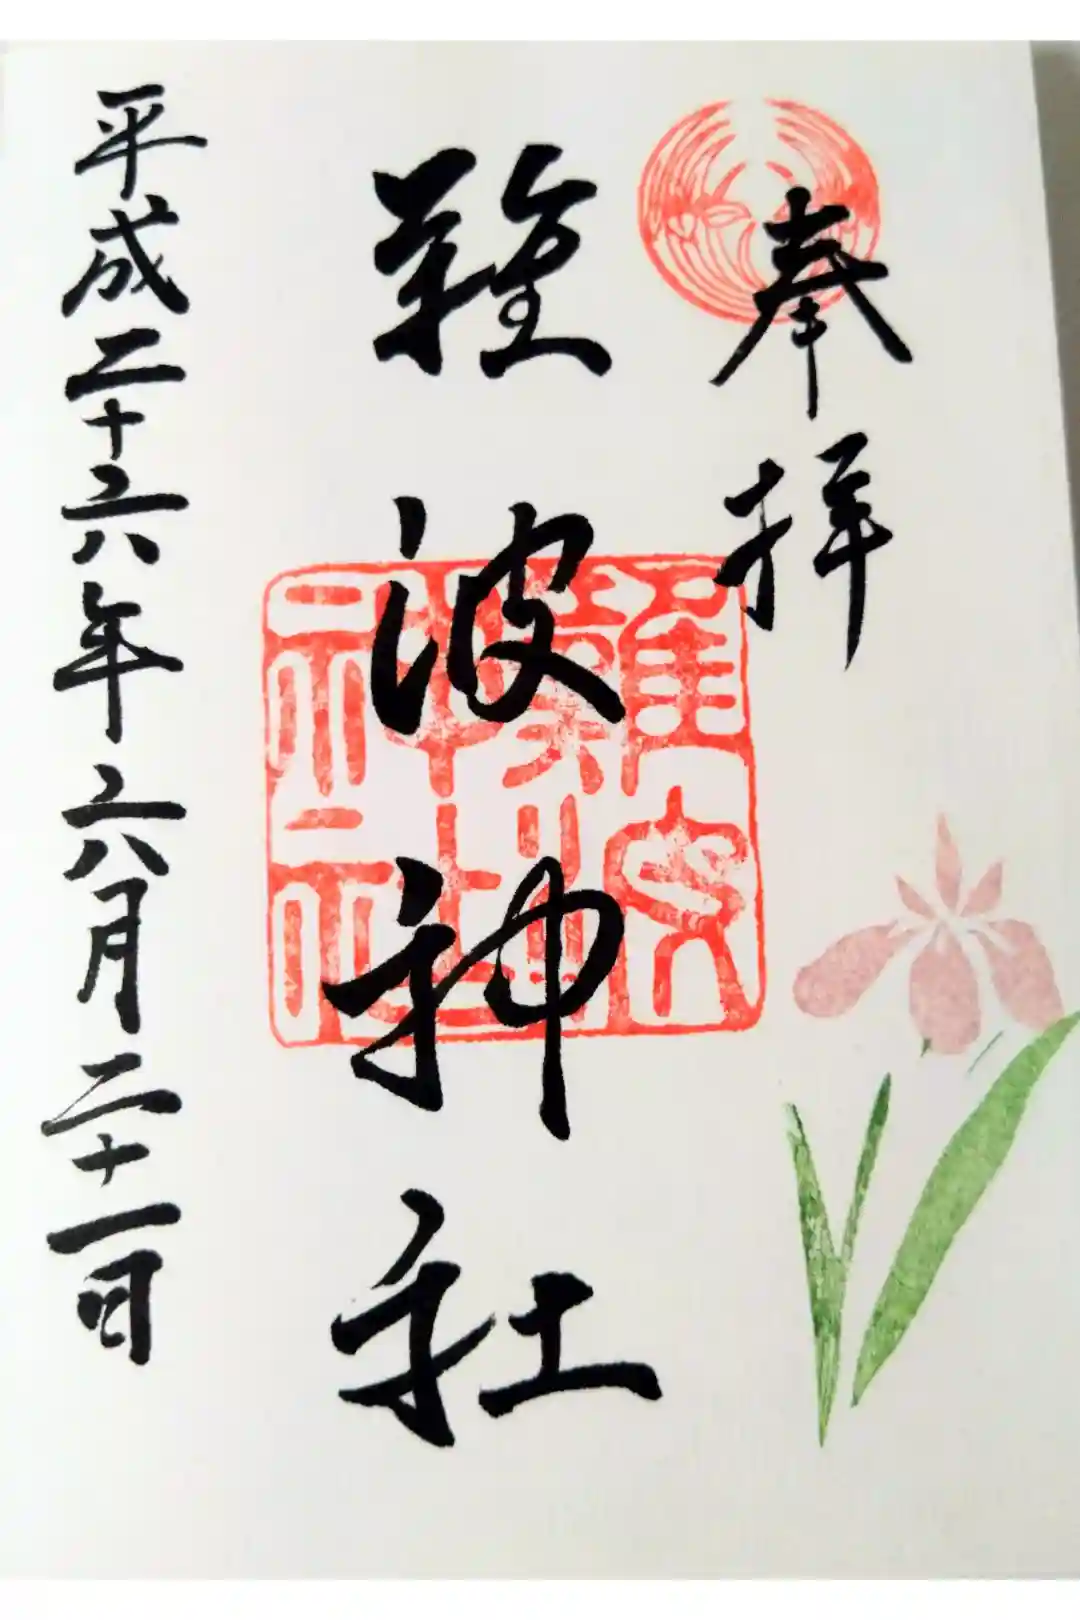 奉拝
難波神社
難波
神社
平成二十六年六月二十一日